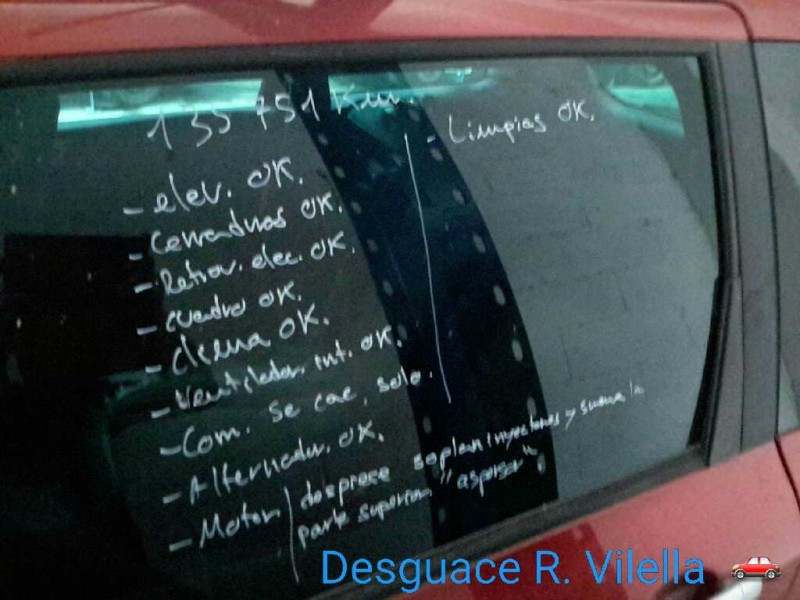 135751 Km.
- elev. OK.
- Cerraduras OK.
- Retrov. elec. OK.
- cuadro OK.
- cierra OK.
- Ventilador int. OK.
- Com. se cae, solo.
- Alternador. OK.
- Motor / desprece soplan inyectores y suena la
parte superior "aspersor"
- Limpias OK.
Desguace R. Vilella